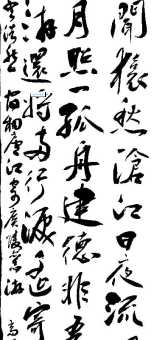 聞猿愁滄江日夜流
月照一孤舟建德非吾
游還將兩行淚遙寄
浩然宿桐廬江寄廣陵舊游